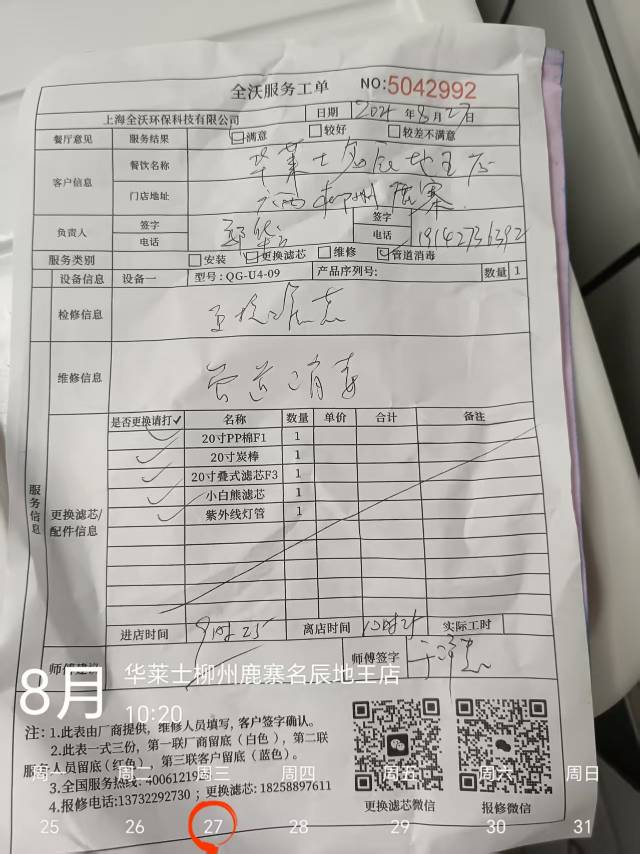 全沃服务工单 NO:5042992
上海全沃环保科技有限公司 日期 2024年8月27日
餐厅意见 服务结果 满意 较好 较差不满意
客户信息 餐饮名称 华莱士名辰地王店
门店地址 广西柳州鹿寨
负责人 签字 签字
电话 电话 19142736392
服务类别 安装 更换滤芯 维修 管道消毒
设备信息 设备一 型号:QG-U4-09 产品序列号: 数量 1
检修信息
维修信息 管道消毒
服务信息
是否更换请打✓ 名称 数量 单价 合计 备注
更换滤芯/配件信息
✓ 20寸PP棉F1 1
✓ 20寸炭棒 1
✓ 20寸叠式滤芯F3 1
✓ 小白熊滤芯 1
✓ 紫外线灯管 1
进店时间 9时25 离店时间 10时25 实际工时
师傅建议 师傅签字
8月 华莱士柳州鹿寨名辰地王店
10:20
注: 1.此表由厂商提供，维修人员填写，客户签字确认。
2.此表一式三份，第一联厂商留底（白色），第二联
服务人员留底(红色)，第三联客户留底（蓝色）。
3.全国服务热线:
4.报修电话:13732292730；更换滤芯:18258897611
更换滤芯微信 报修微信
周一 周二 周三 周四 周五 周六 周日
25 26 27 28 29 30 31